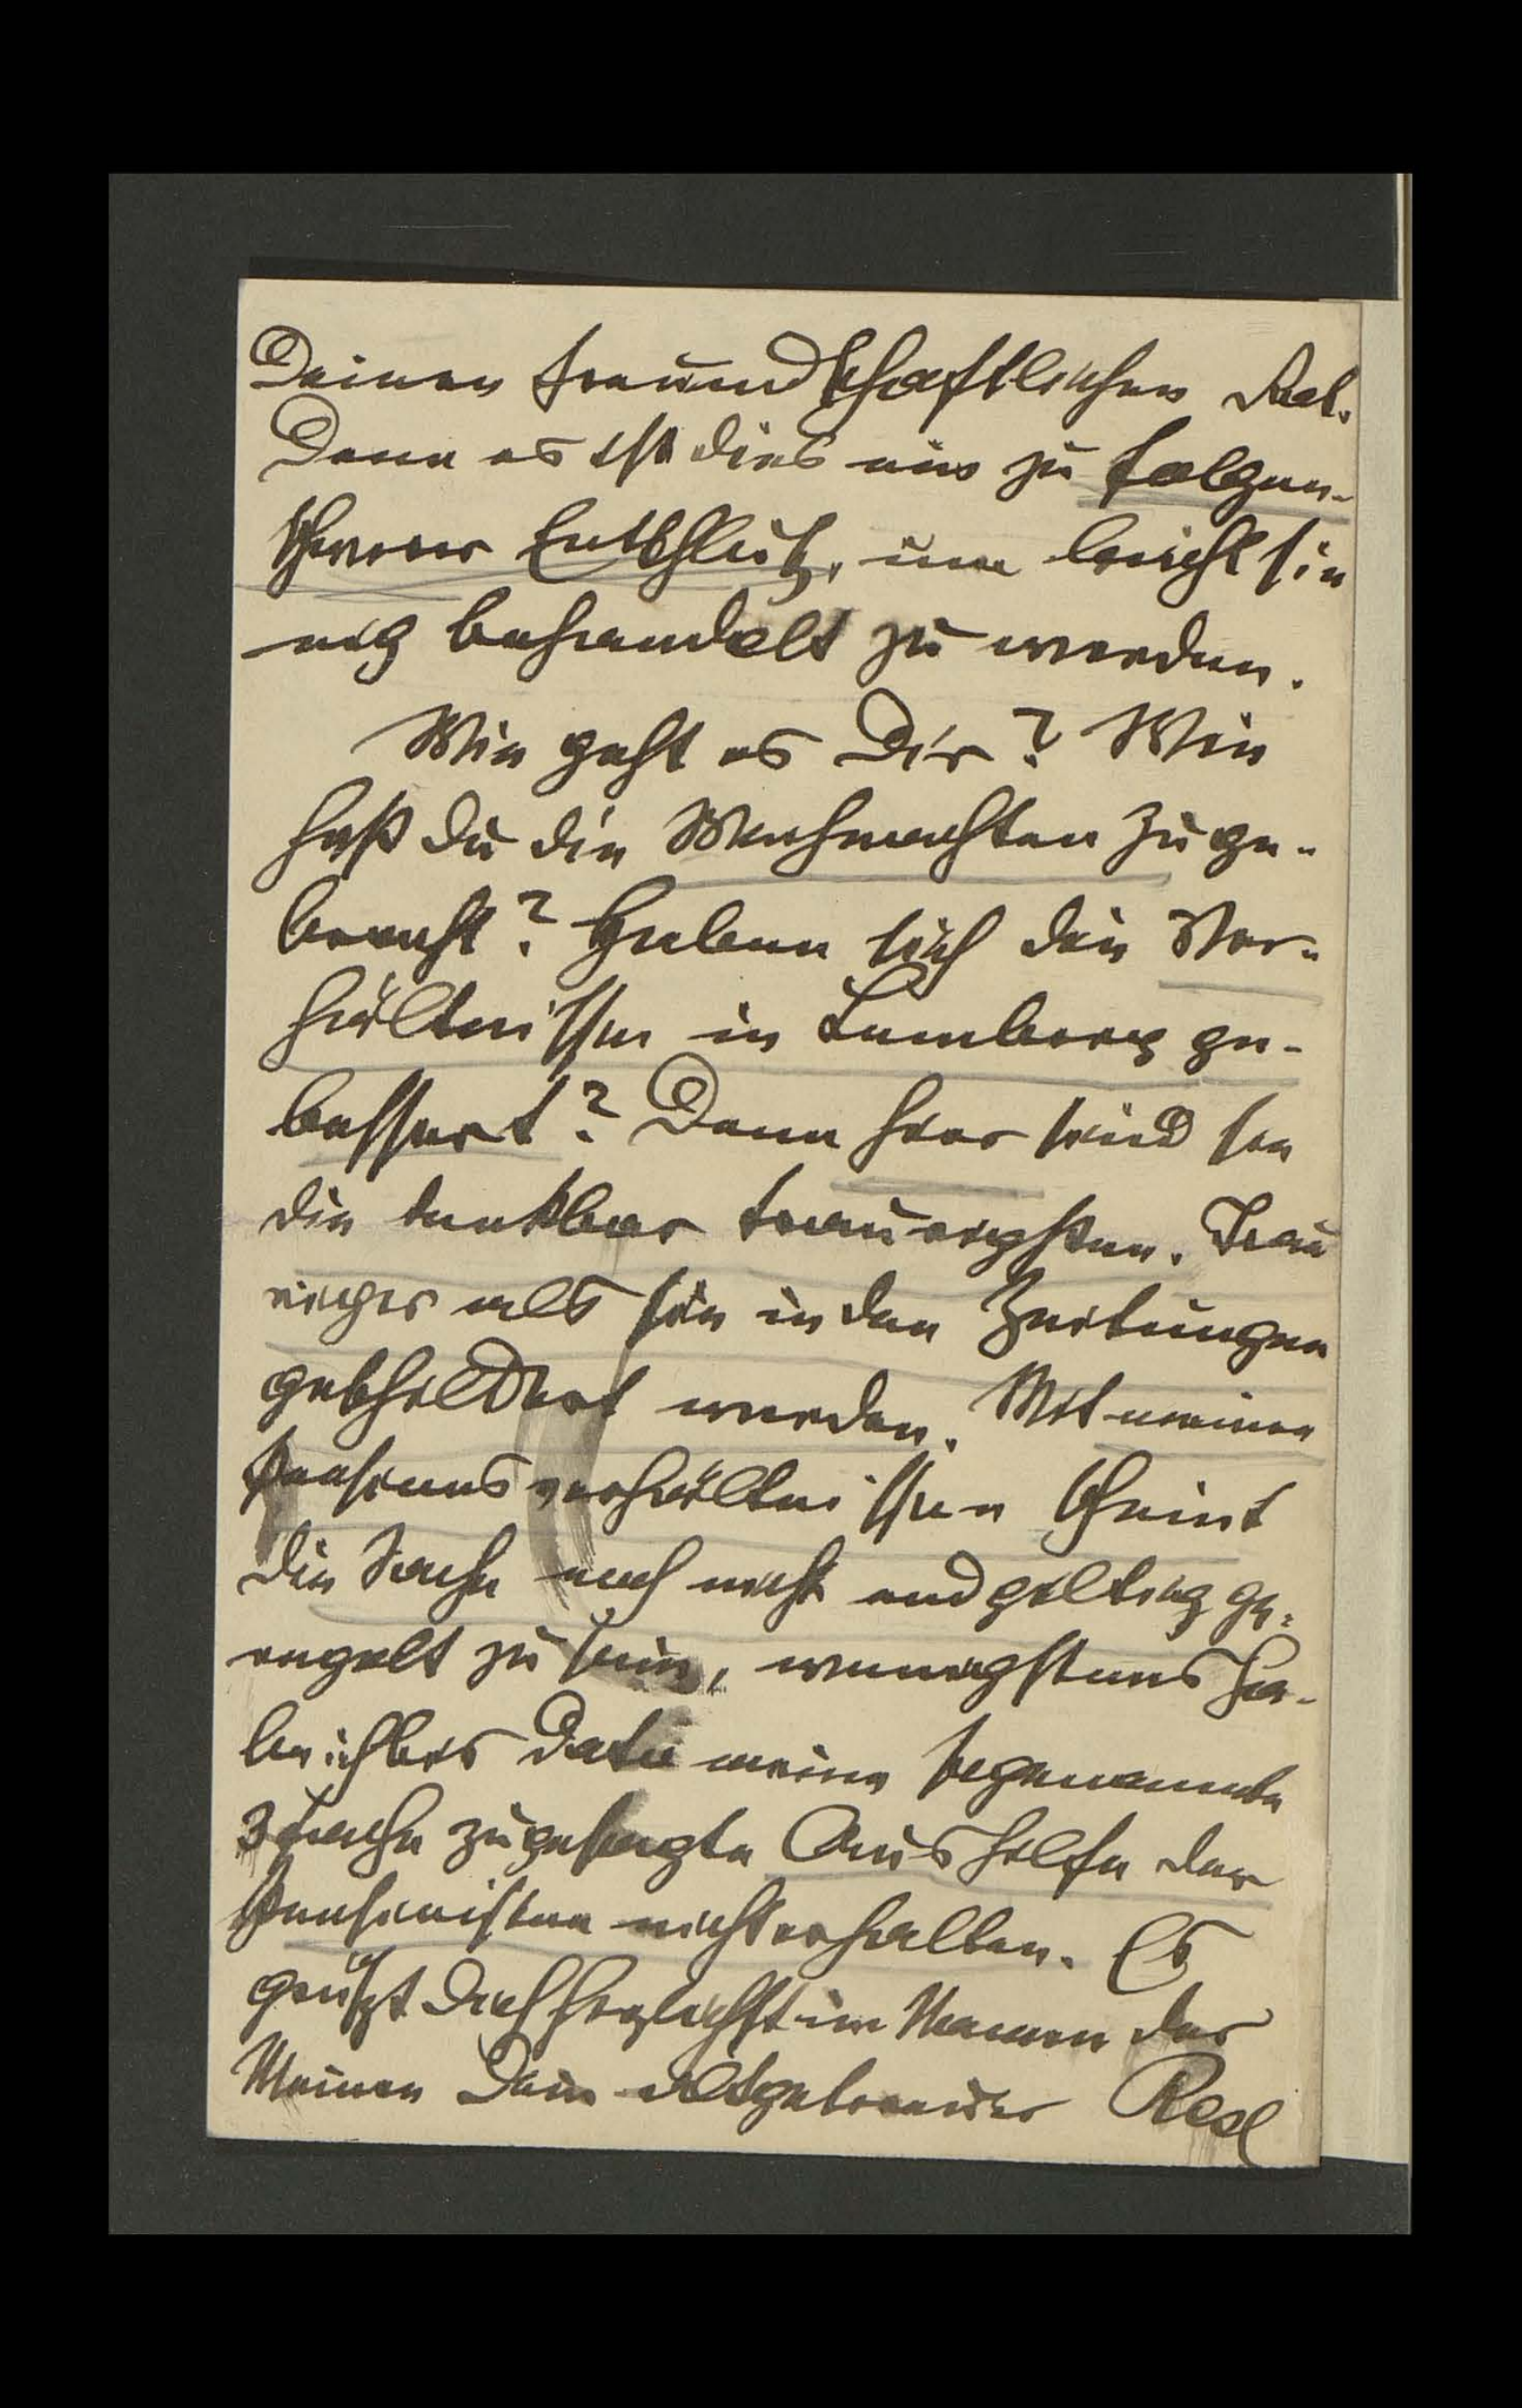 Deinen freundschaftlichen Rat.
Denn es ist dies ein zu folgen-
schwerer Entschluß, um leichtsin
-nig behandelt zu werden.
Wie geht es Dir? Wie
hast du die Weihnachten zuge-
bracht? Haben sich die Ver-
hältnisse in Lemberg ge-
bessert? Denn hier sind sie
die denkbar traurigsten. Trau
riger als sie in den Zeitungen
geschildert werden. Mit meinen
Pensionsverhältnissen scheint
die Sache noch nicht endgiltig ge-
regelt zu sein, wenigstens ha-
be ich bis Dato meine sogenannte
3fache zugesagte Aushilfe der
Pensionisten nicht erhalten. Es
grüßt Dich herzlichst im Namen der
Meinen Dein altgetreuer Resl